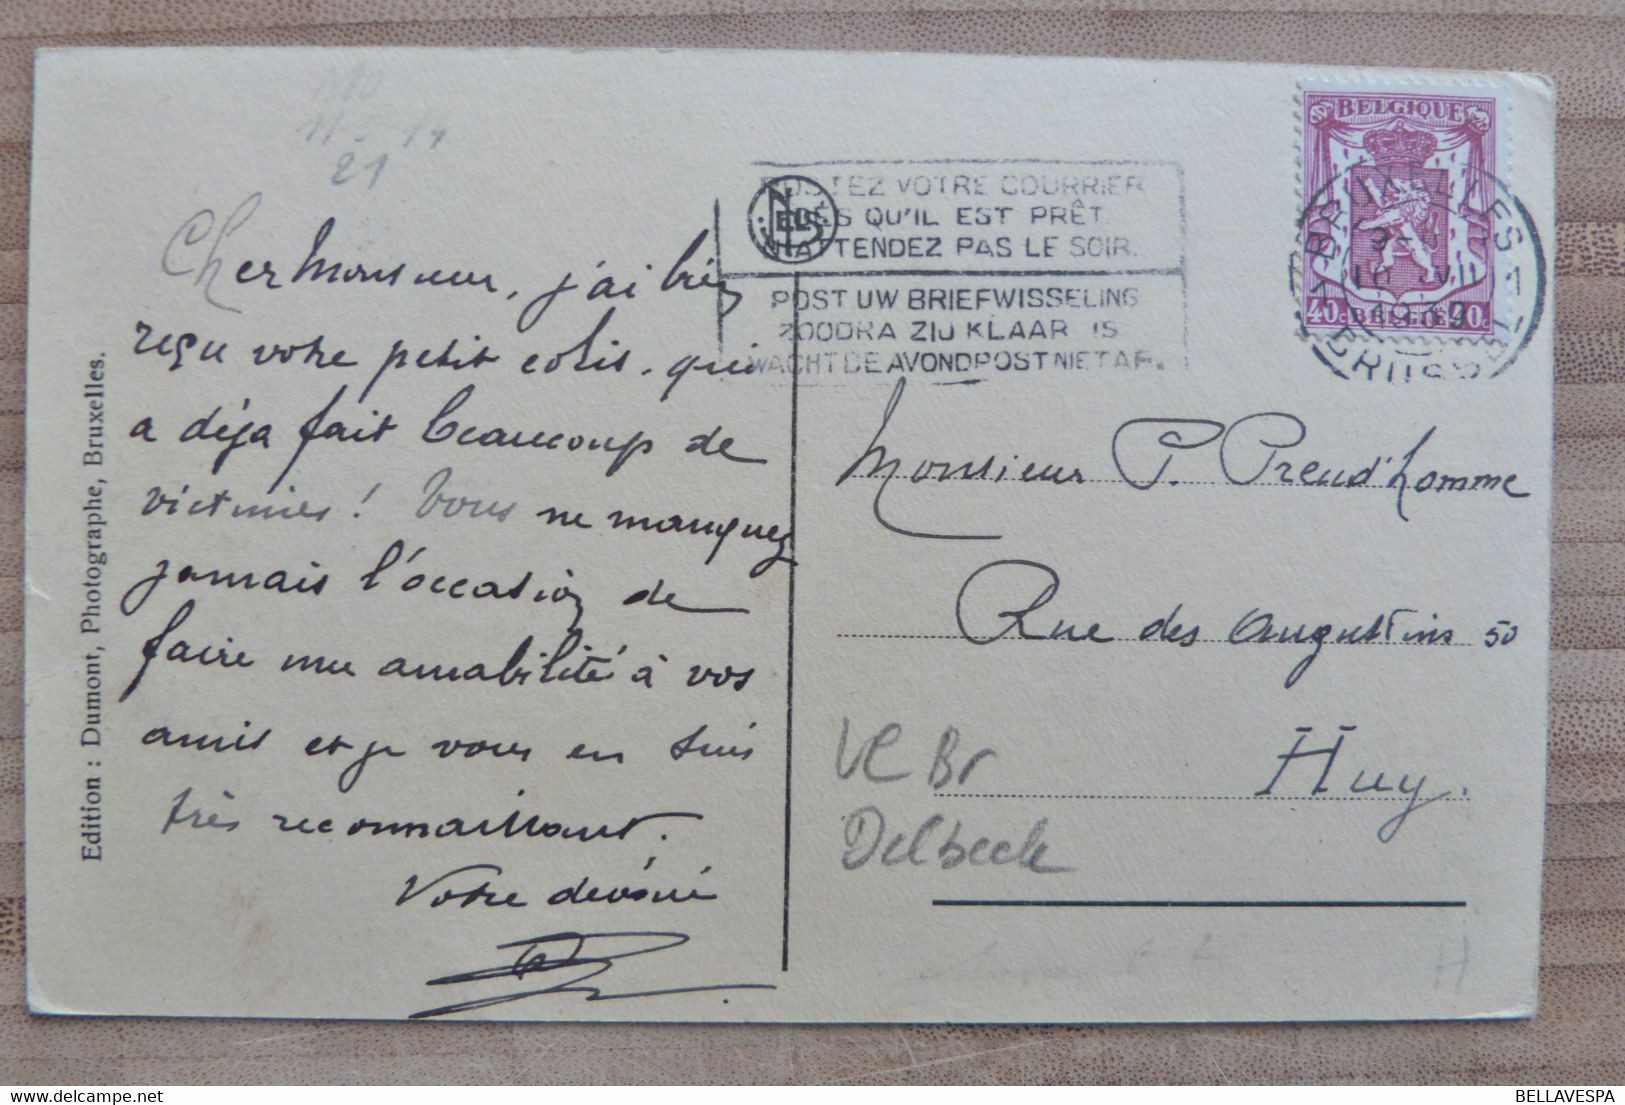 21
Cher Monsieur, j'ai bien
reçu votre petit colis, qui
a déja fait beaucoup de
victimes ! Vous ne manquez
jamais l'occasion de
faire une amabilité à vos
amis et je vous en suis
très reconnaissant.
Votre dévoué
Edition : Dumont, Photographe, Bruxelles.
NELS
POSTEZ VOTRE COURRIER
DÈS QU'IL EST PRÊT
N'ATTENDEZ PAS LE SOIR.
POST UW BRIEFWISSELING
ZOODRA ZIJ KLAAR IS
WACHT DE AVONDPOST NIET AF.
BELGIQUE
40c BELGIË 40c
1 BRUXELLES 1
VII
BRUSSEL
Monsieur P. Preud'homme
Rue des Augustins 50
Huy.
VC Br
Delbeek
H
BELLAVESPA